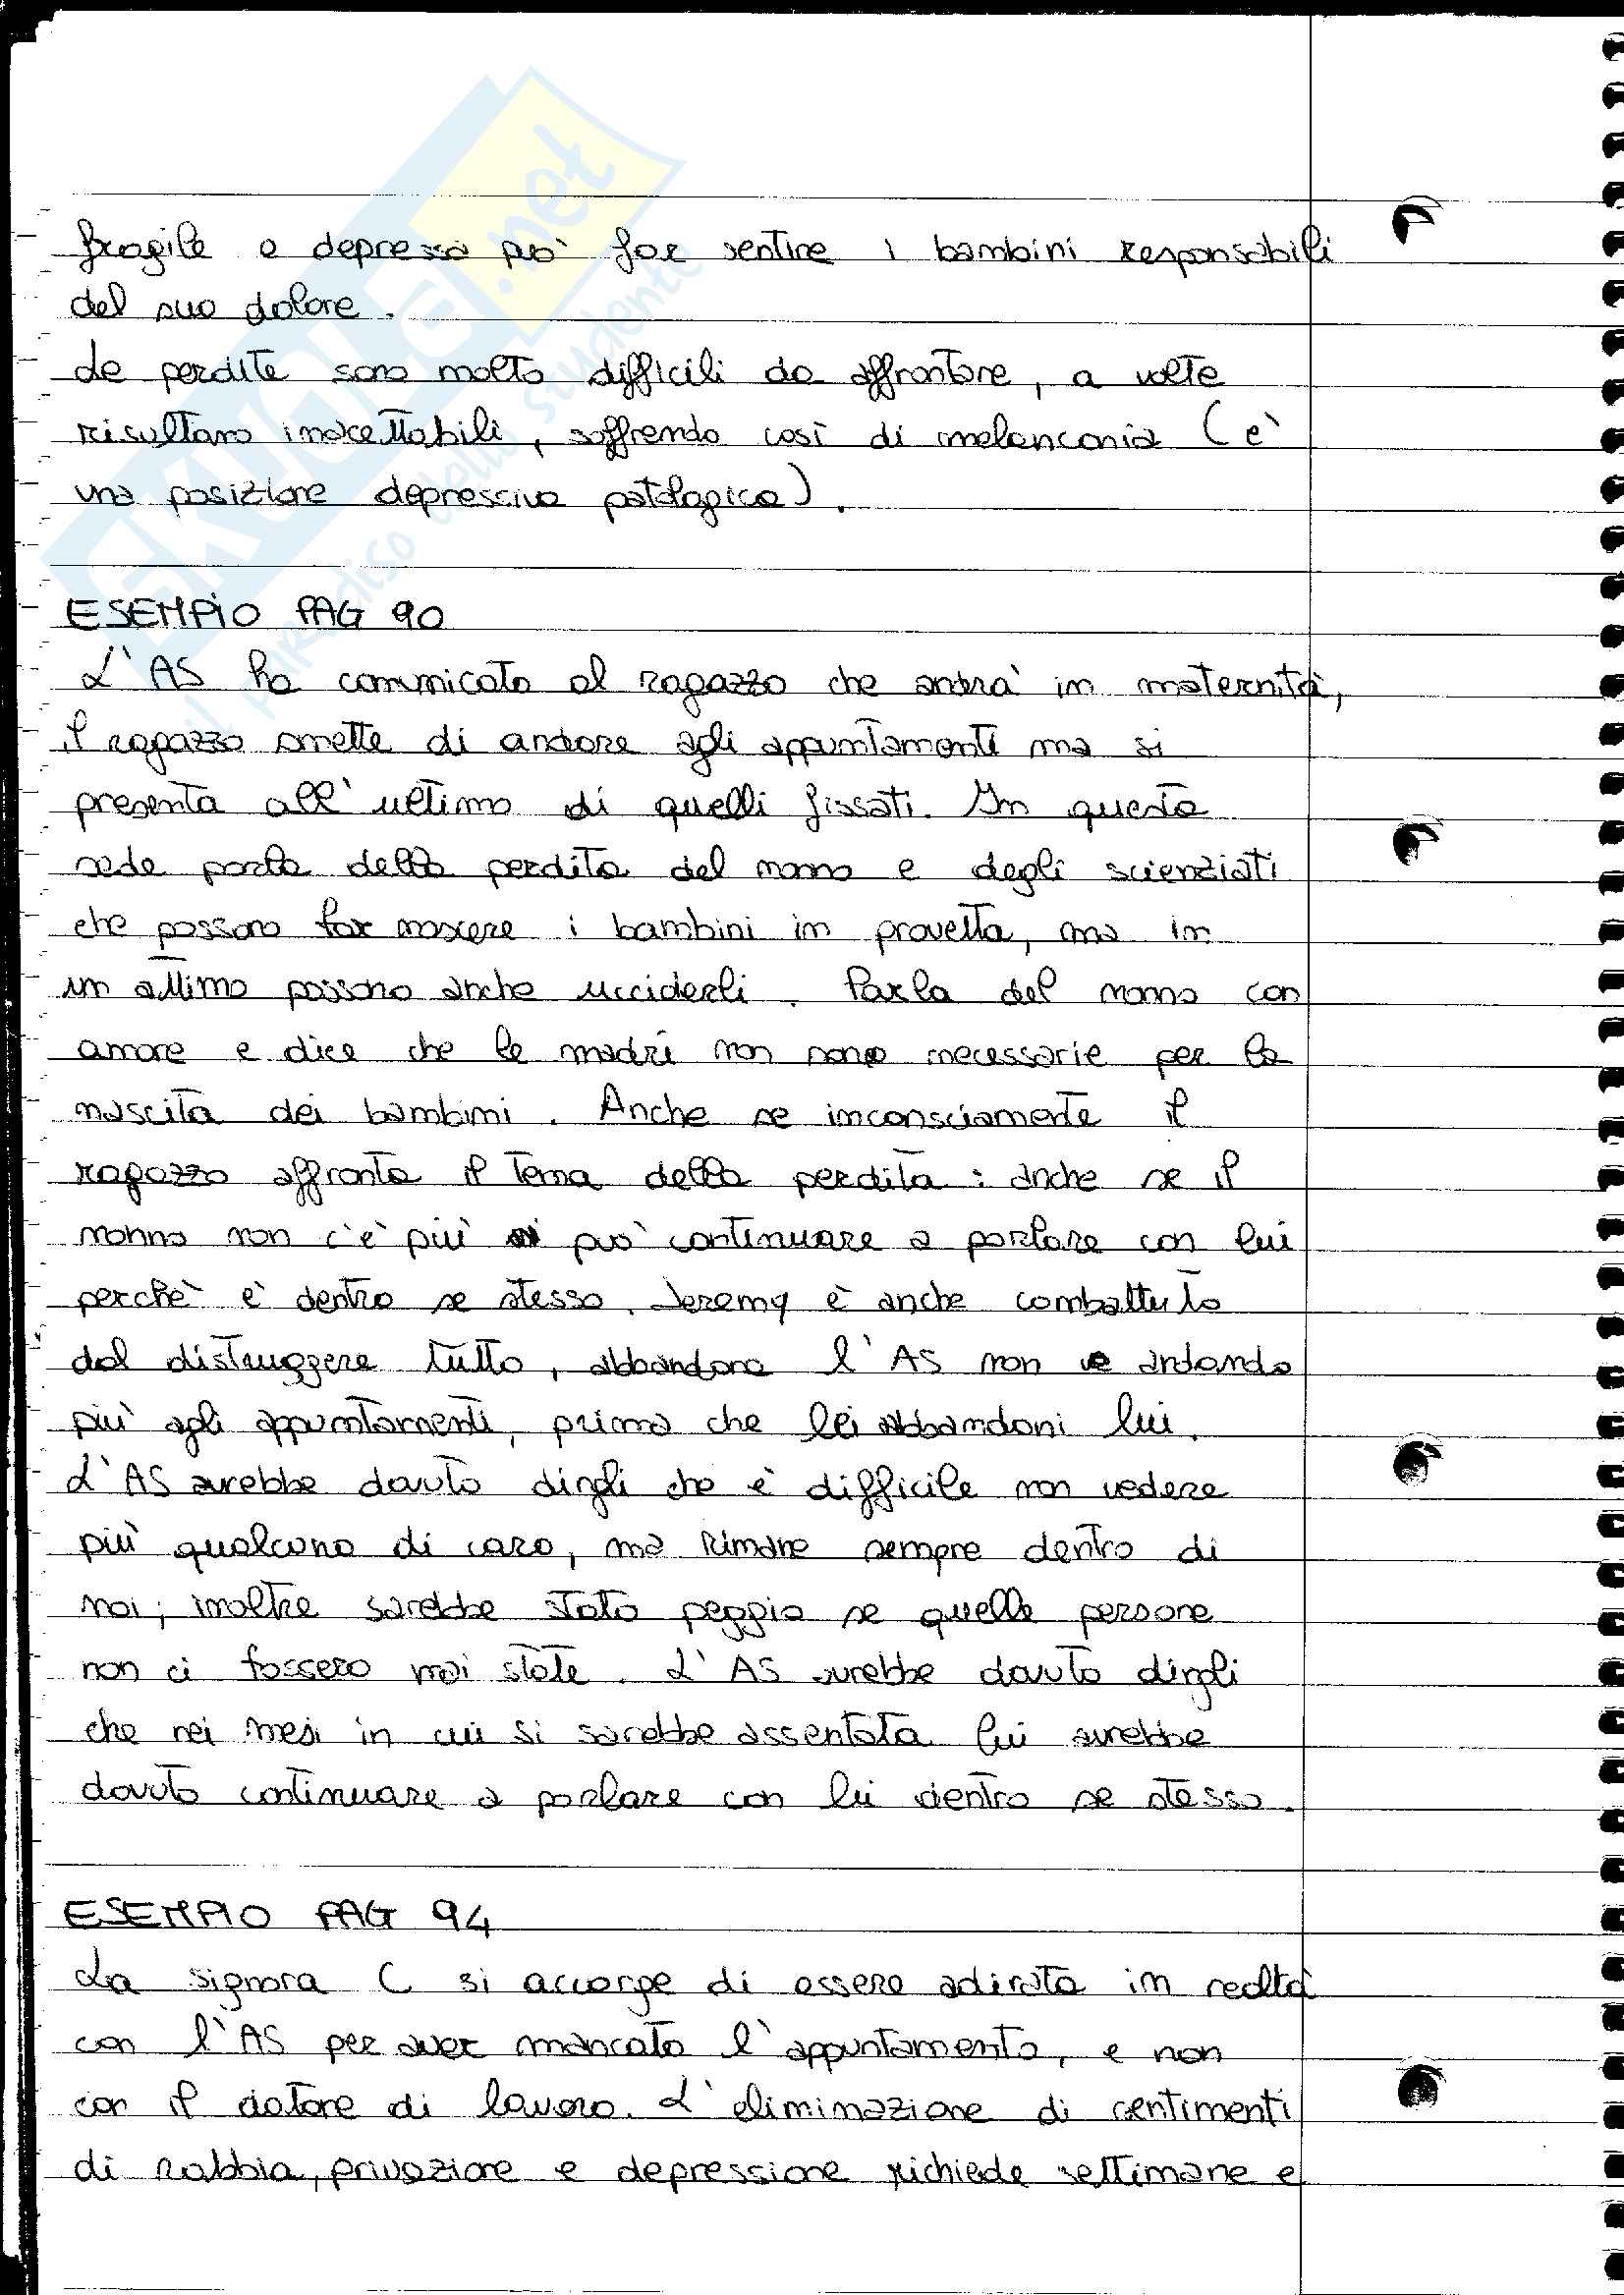 SKUOLA.net
il paradiso dello studente
fragile e depressa può far sentire i bambini responsabili
del suo dolore.
Le perdite sono molto difficili da affrontare, a volte
risultano inaccettabili, soffrendo così di melanconia (è
una posizione depressiva patologica).
ESEMPIO PAG 90
L'AS ha comunicato al ragazzo che andrà in maternità,
il ragazzo smette di andare agli appuntamenti ma si
presenta all'ultimo di quelli fissati. In questa
sede parla della perdita del nonno e degli scienziati
che possono far nascere i bambini in provetta, ma in
un attimo possono anche ucciderli. Parla del nonno con
amore e dice che le madri non sono necessarie per la
nascita dei bambini. Anche se inconsciamente il
ragazzo affronta il tema della perdita: anche se il
nonno non c'è più può continuare a parlare con lui
perchè è dentro se stesso. Jeremy è anche combattuto
dal distruggere tutto, abbandona l'AS non andando
più agli appuntamenti, prima che lei abbandoni lui.
L'AS avrebbe dovuto dirgli che è difficile non vedere
più qualcuno di caro, ma rimane sempre dentro di
noi; inoltre sarebbe stato peggio se quelle persone
non ci fossero mai state. L'AS avrebbe dovuto dirgli
che nei mesi in cui si sarebbe assentata lui avrebbe
dovuto continuare a parlare con lei dentro se stesso.
ESEMPIO PAG 94
La signora C si accorge di essere adirata in realtà
con l'AS per aver mancato l'appuntamento, e non
con il datore di lavoro. L'eliminazione di sentimenti
di rabbia, privazione e depressione richiede settimane e